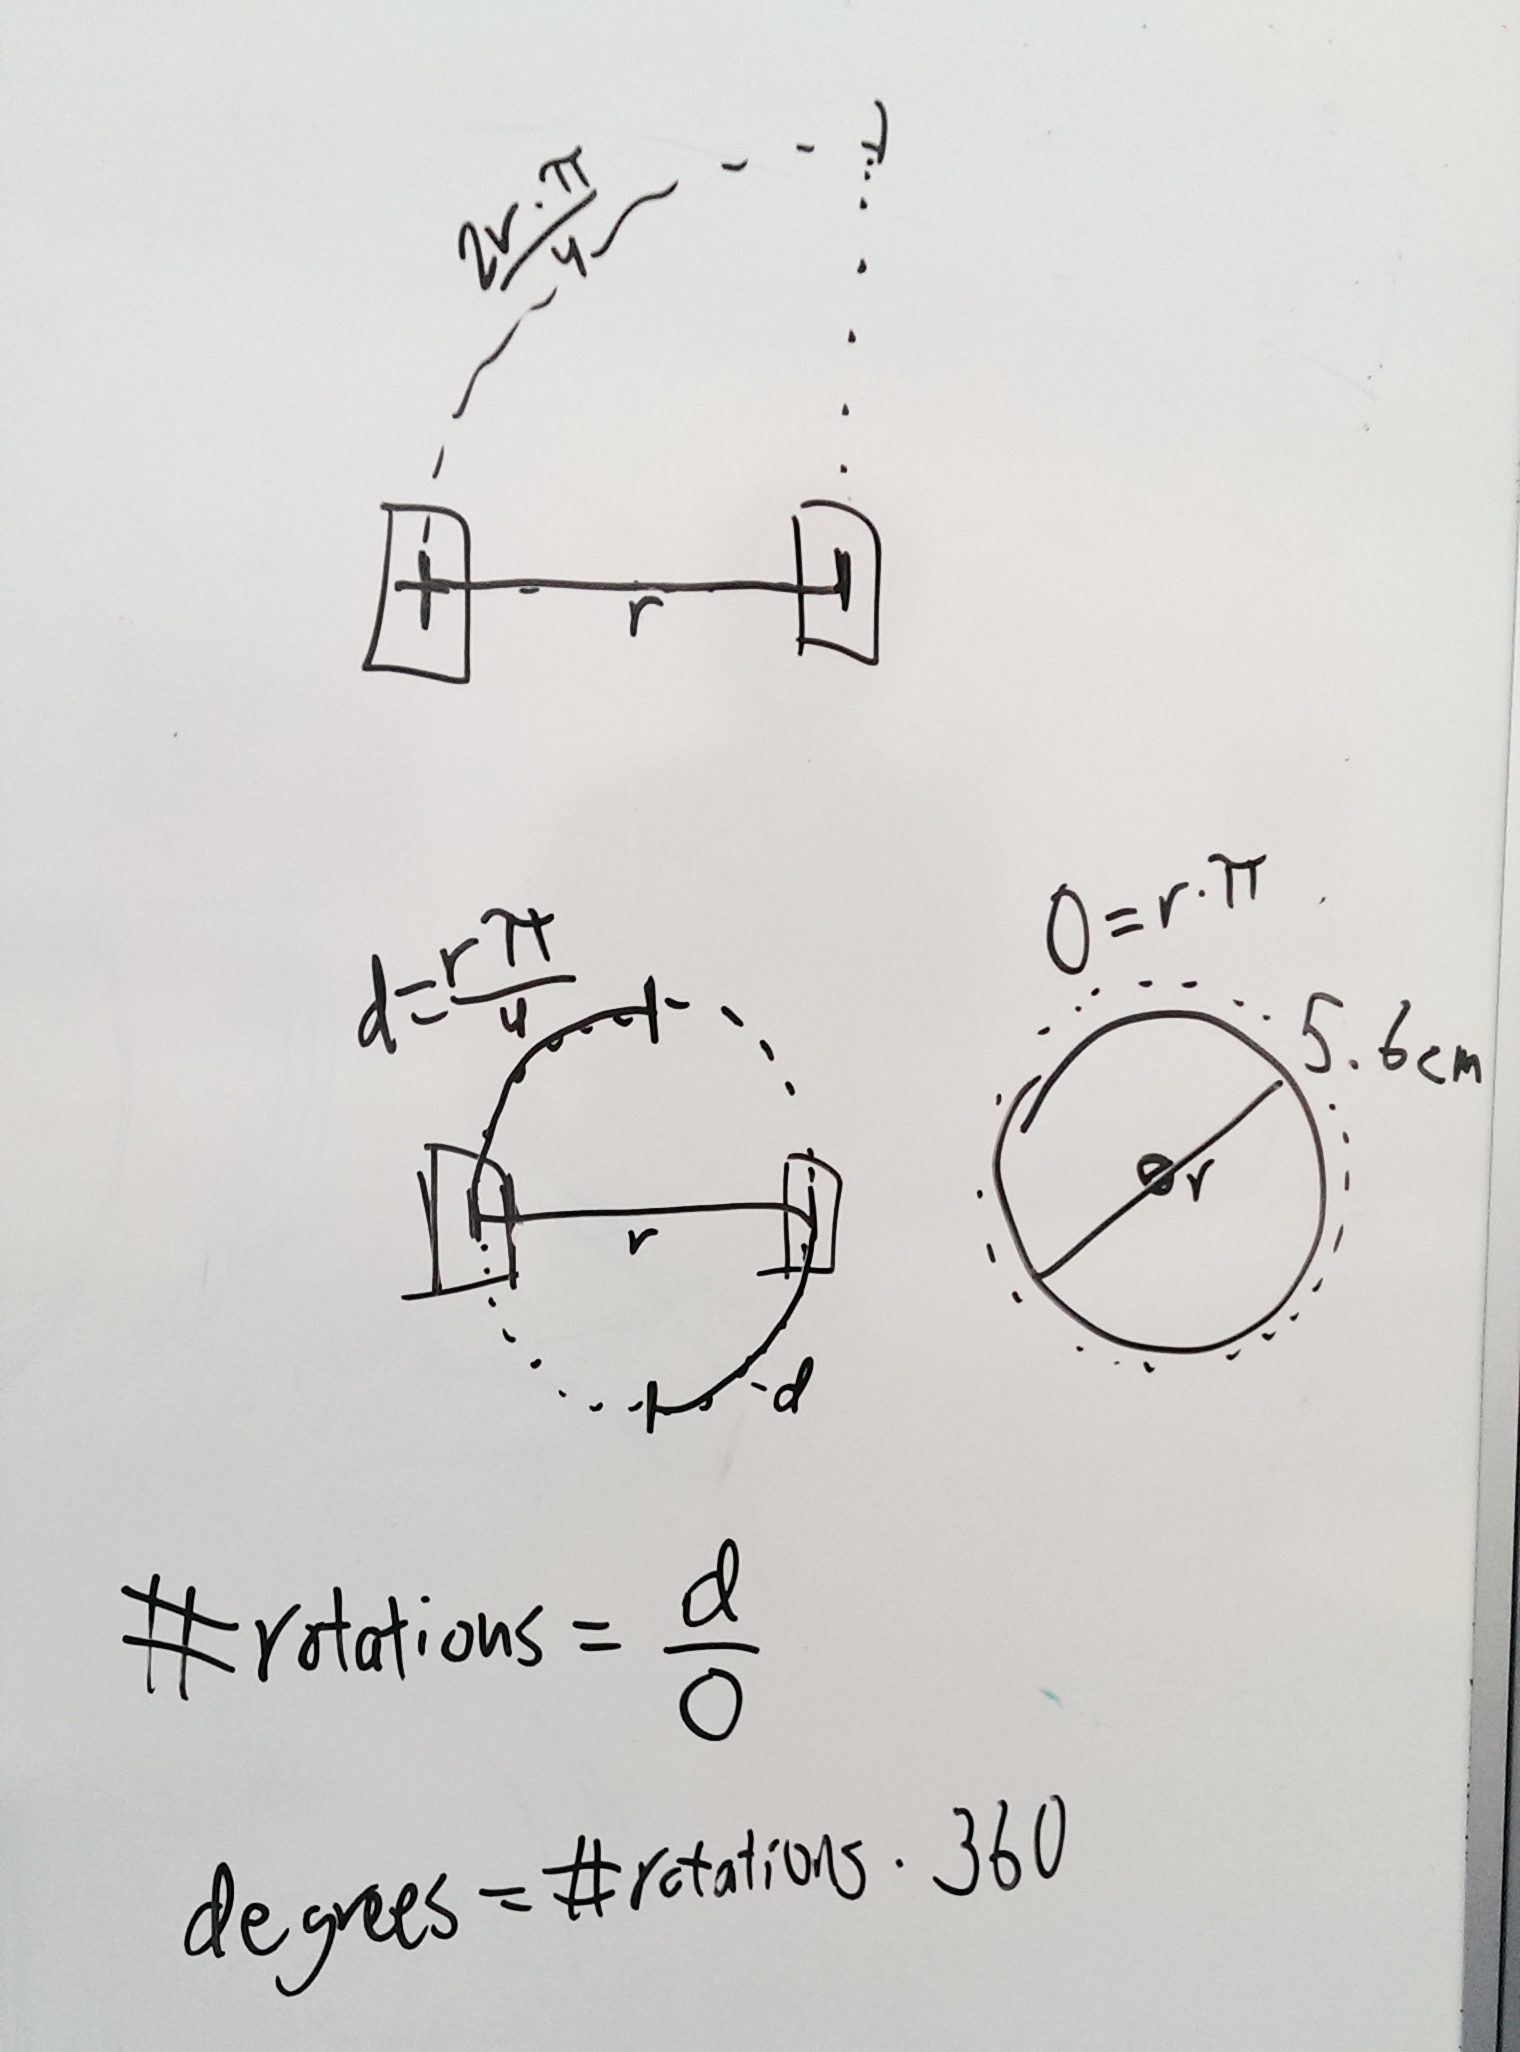 2r·π/4
r
O=r·π
d=rπ/4
5.6cm
r
r
-d
#rotations = d/O
degrees = #rotations · 360